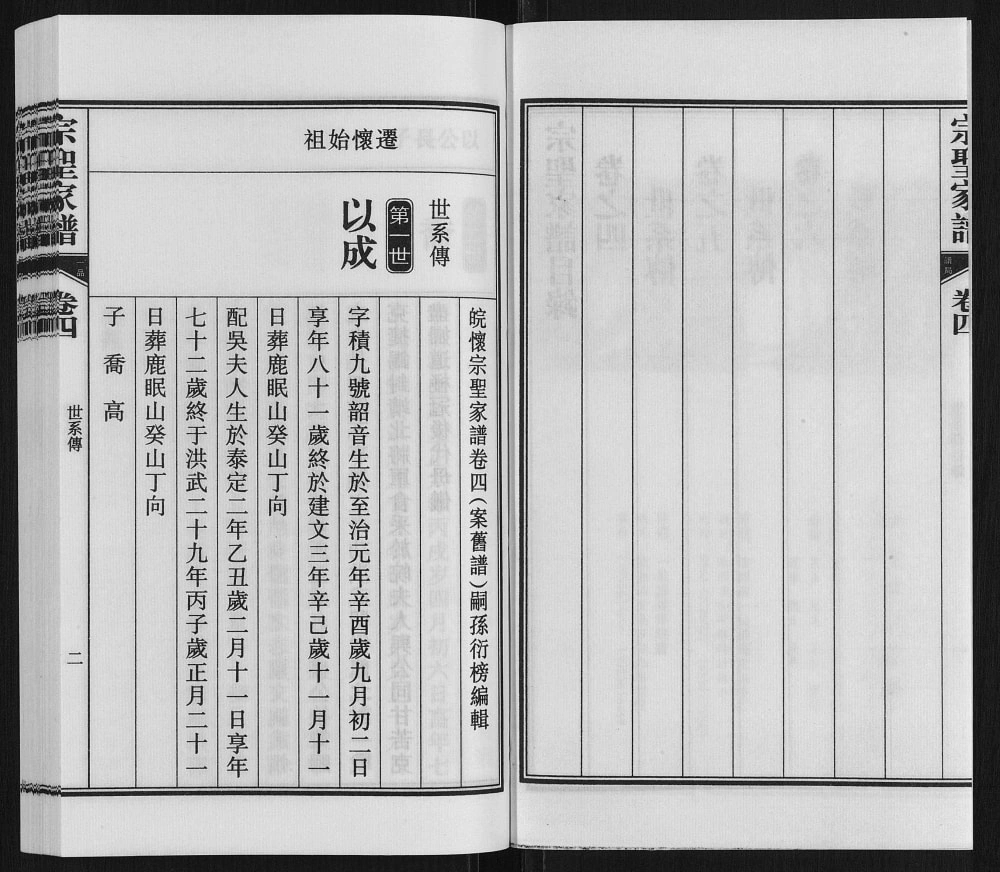 宗聖家譜
譜局
卷四
遷懷始祖
世系傳
第一世
以成
皖懷宗聖家譜卷四（案舊譜）嗣孫衍榜編輯
字積九號韶音生於至治元年辛酉歲九月初二日
享年八十一歲終於建文三年辛己歲十一月十一
日葬鹿眠山癸山丁向
配吳夫人生於泰定二年乙丑歲二月十一日享年
七十二歲終于洪武二十九年丙子歲正月二十一
日葬鹿眠山癸山丁向
子 喬 高
宗聖家譜
一品
卷四
世系傳
二